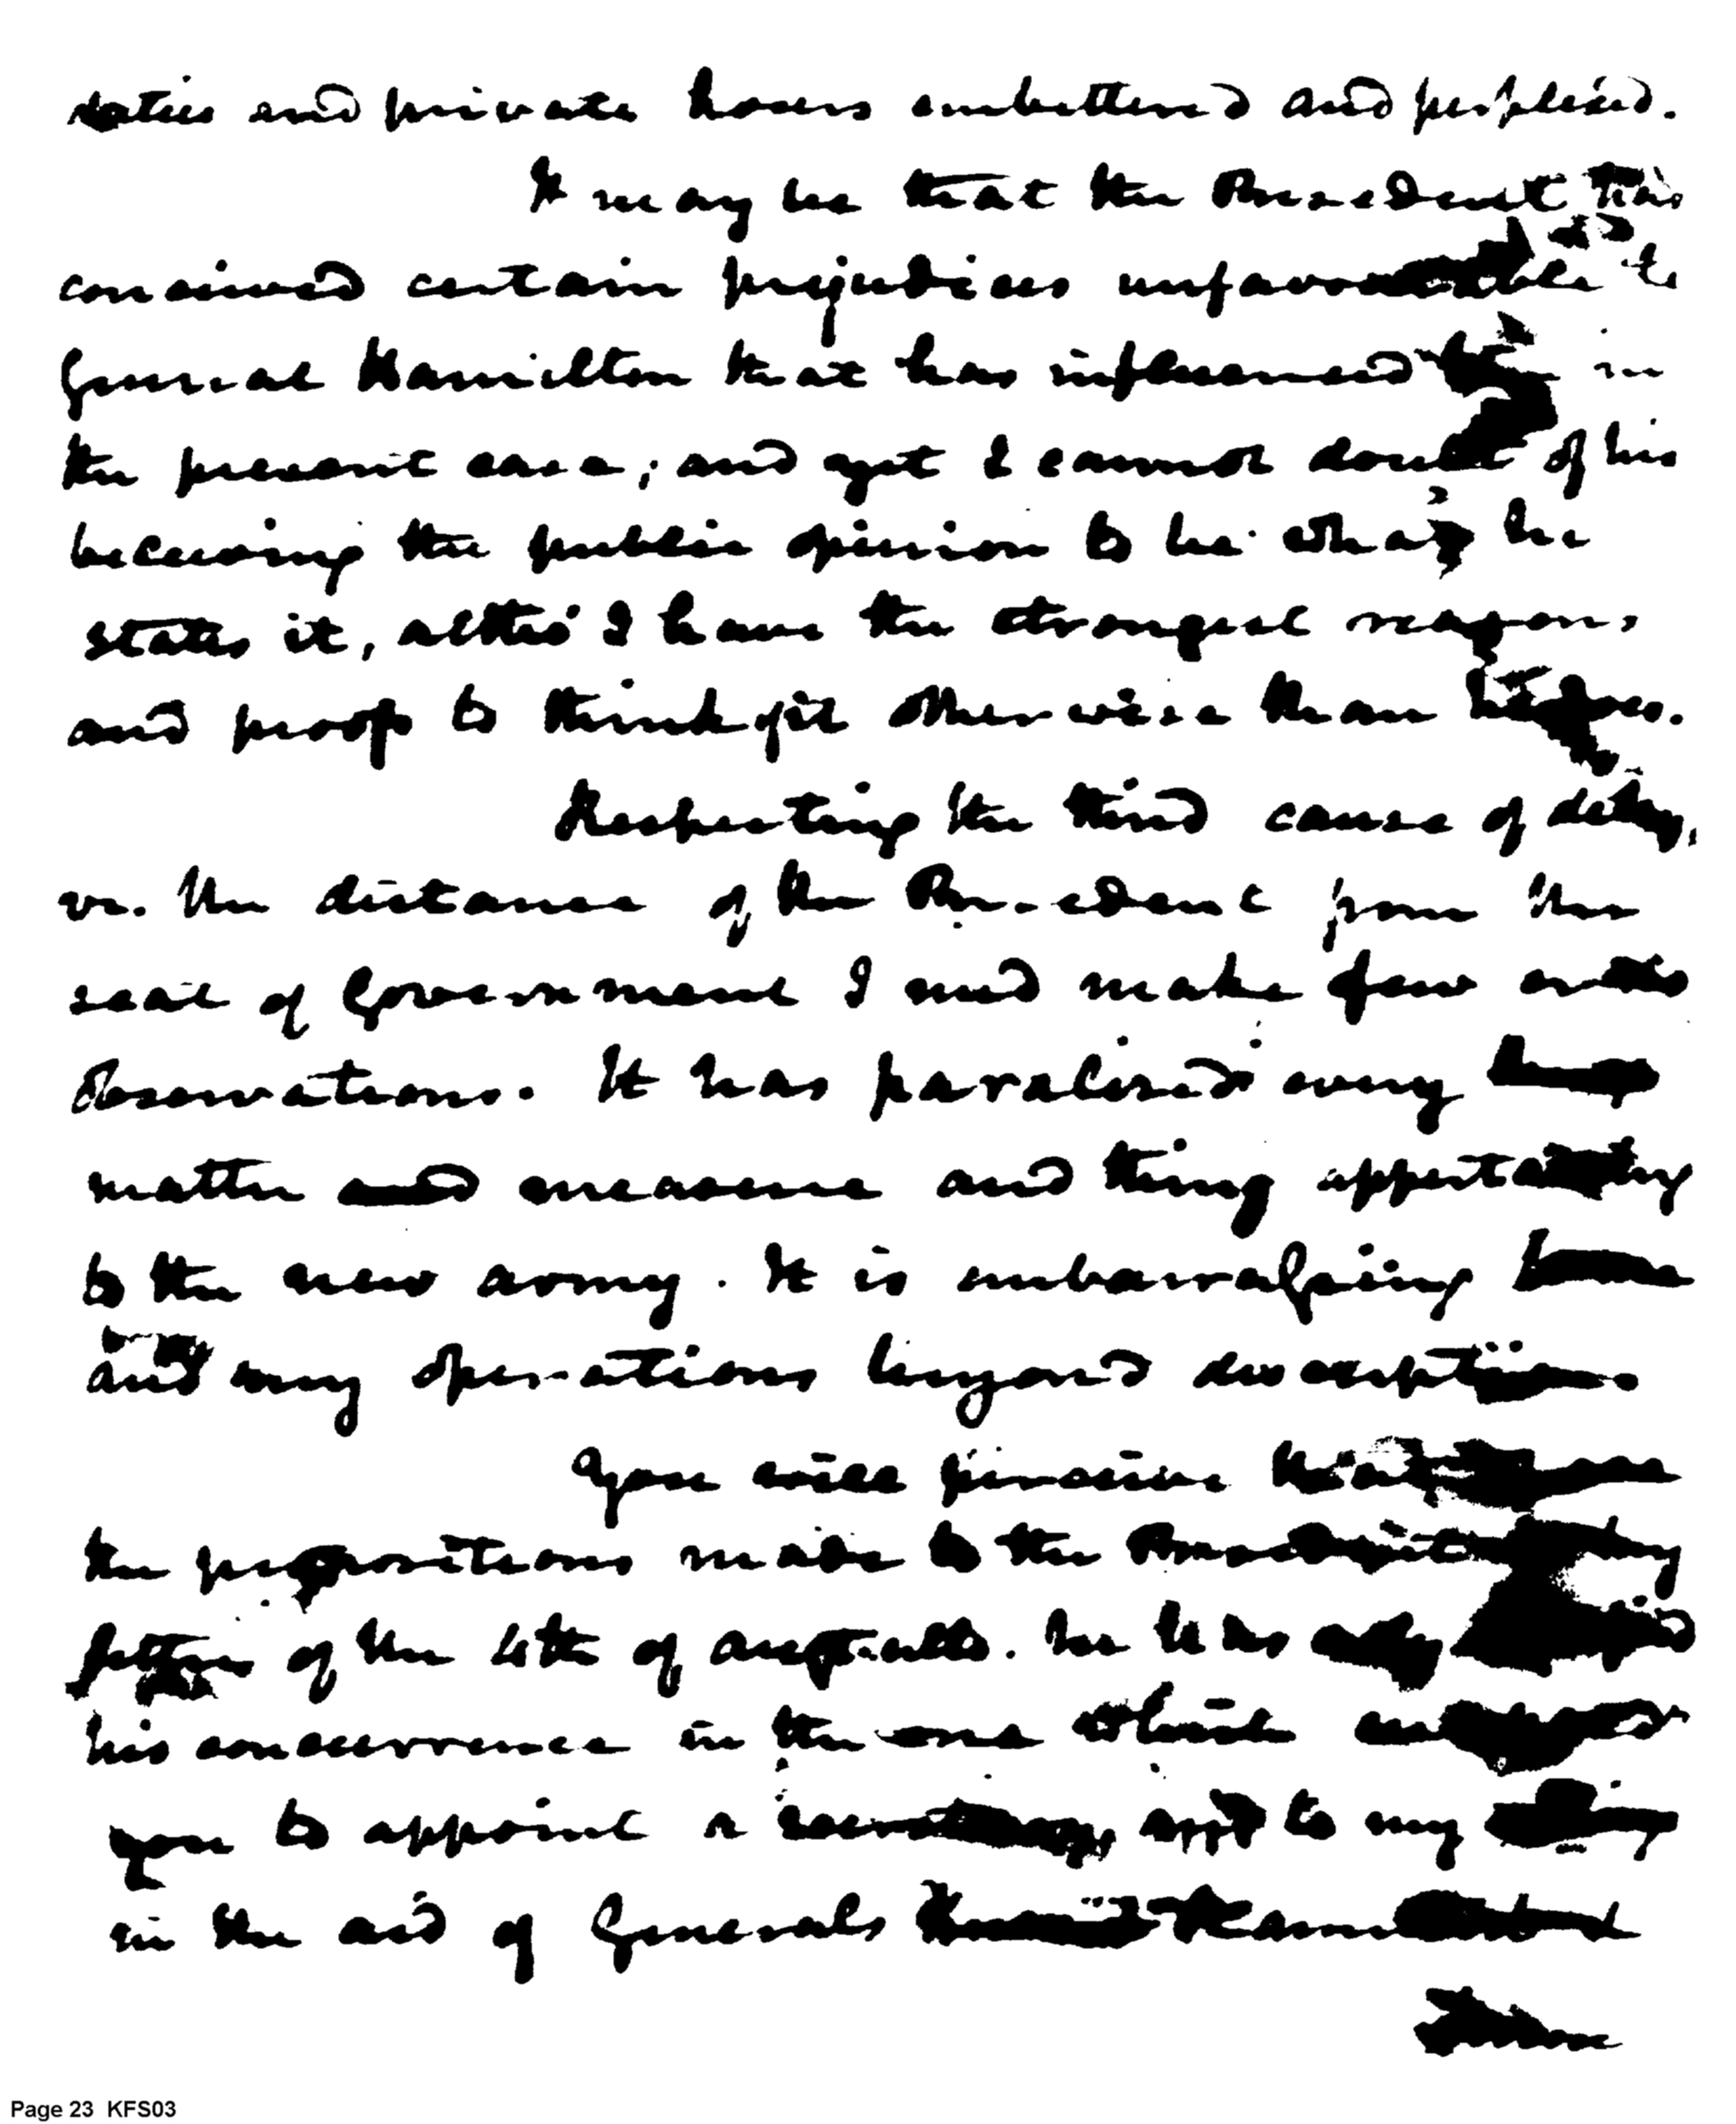 duties and private hours embittered and perplexed.
It may be that the President has
conceived certain prejudices unfavourable to
General Hamilton that has influenced in
the present case; and yet I cannot doubt of his
believing the public opinion to be what he
states it, altho' I have the strongest reasons
and proof to think it otherwise than he does.
Respecting the third cause of delay,
vz. the distance of the President from the
seat of Government I need make few
observations. It has paralised every
matter and measure and thing appertaining
to the new army. It is embarrassing
and my operations beyond description.
You will perceive
the propositions made to the President
of the 4th of . He has only
his concurrence in the one which
you to appoint a to my
in the aid of Generals
Page 23 KFS03